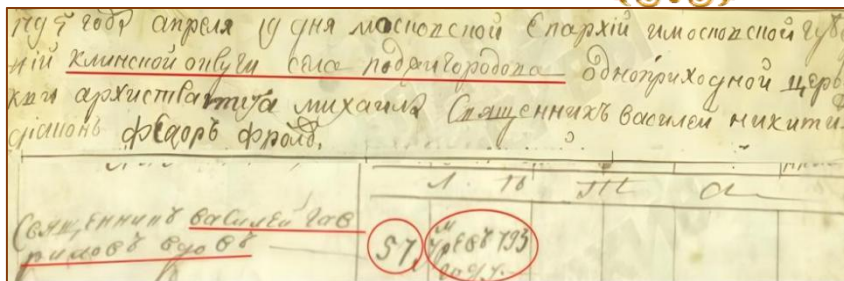 году апреля 19 дня московской Епархїй имосковской губе
нїй клинской округи села подъигородова одноприходной церь
кви архистратига михаила Священникъ василей никити
диаконъ федоръ фролв.
Л Ѣ Т а
Священникъ василей гав
риловъ вдовъ
57,
умре въ 793
году.